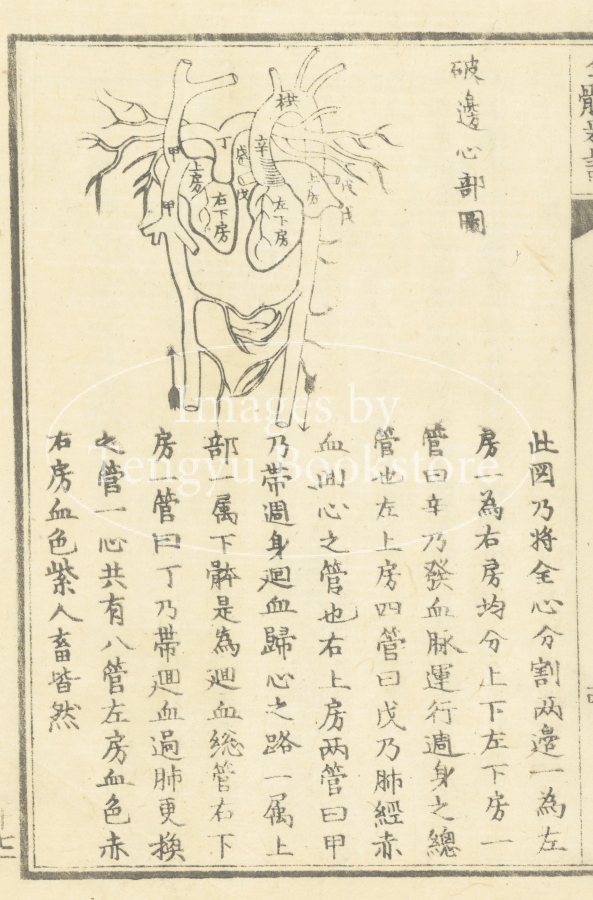 破邊心部圖
此図乃將全心分割兩邊一為左
房一為右房均分上下左下房一
管曰辛乃發血脉運行週身之總
管也左上房四管曰戊乃肺經赤
血回心之管也右上房兩管曰甲
乃帶週身廻血歸心之路一属上
部一属下體是為廻血総管右下
房一管曰丁乃帶廻血過肺更換
之管一心共有八管左房血色赤
右房血色紫人畜皆然
甲
甲
上房
右下房
丁
戊
戊
辛
左下房
上房
戊
戊
Images by
Tengyu Bookstore